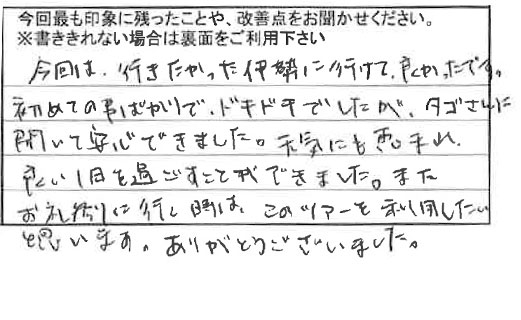 今回最も印象に残ったことや、改善点をお聞かせください。
※書ききれない場合は裏面をご利用下さい
今回は、行きたかった伊勢に行けて良かったです。
初めての事ばかりで、ドキドキでしたが、タゴさんに
聞いて安心できました。天気にも恵まれ、
良い1日を過ごすことができました。また
お礼参りに行く時は、このツアーを利用したい
と思います。ありがとうございました。